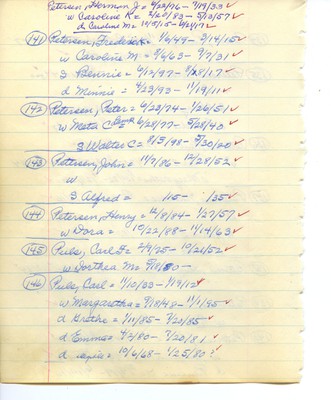 Petersen, Herman J = 4/23/96 - 7/19/33 ✓
w Caroline K = 2/20/83 - 5/13/57 ✓
d Caroline M =
(141) Petersen, Frederick = 1/6/49 - 3/14/15 ✓
w Caroline M = 9/6/63 - 9/7/31 ✓
S Bennie = 6/12/97 - 8/28/17 ✓
d Minnie = 4/23/93 - 11/19/11 ✓
(142) Petersen, Peter = 6/23/74 - 1/26/51 ✓
w Meta C = 6/28/77 - 5/28/43 ✓
S Walter C = 8/5/98 - 5/30/20 ✓
(143) Petersen, John = 11/7/86 - 12/28/52 ✓
w
S Alfred = /15 - /35 ✓
(144) Petersen, Henry = 12/8/84 - 1/27/57 ✓
w Dora = 10/22/88 - 11/14/63 ✓
(145) Puls, Carl F = 2/9/75 - 10/21/52 ✓
w Dorthea M = 5/18/80 -
(146) Puls, Carl = 11/10/33 - 1/19/12 ✓
w Margaretha = 9/18/48 - 11/1/95 ✓
d Grethe = 1/11/85 - 7/20/85 ✓
d Emma = 4/2/80 - 7/20/81 ✓
d = 10/6/68 - 1/25/80 ✓